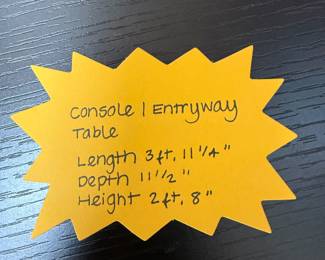 Console | Entryway
Table
Length 3ft, 11 1/4"
Depth 11 1/2"
Height 2ft, 8"